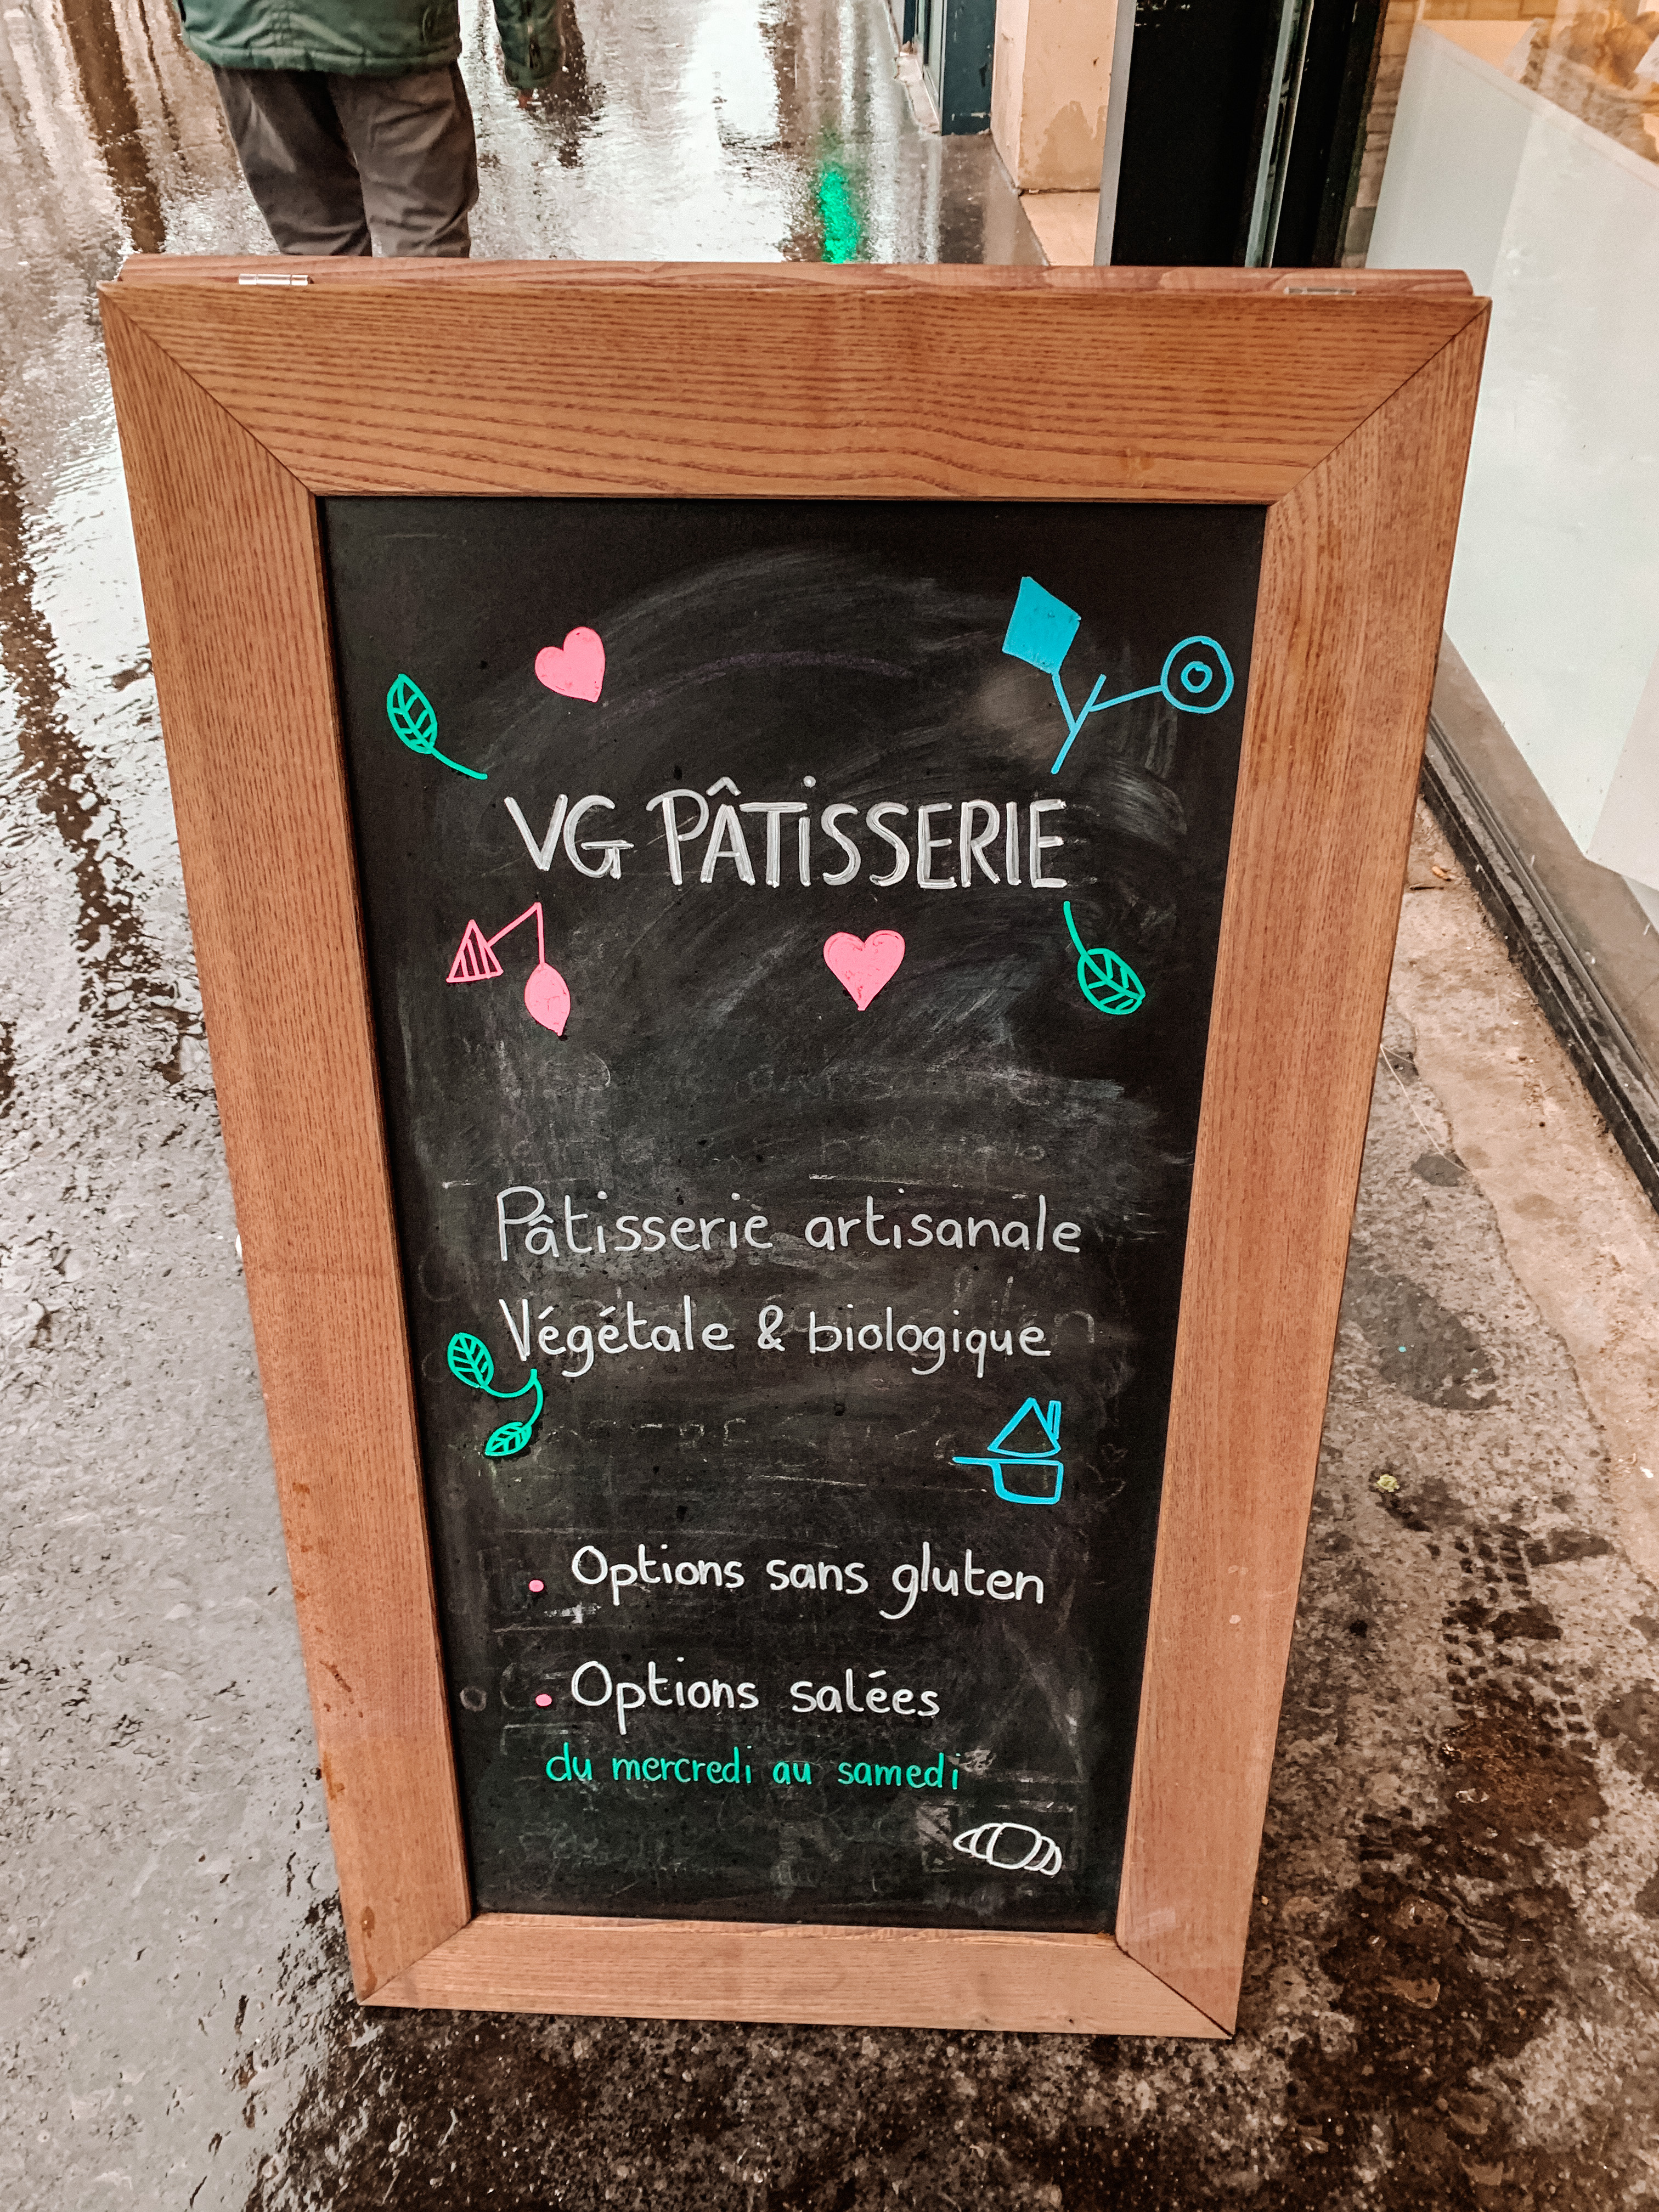 VG PÂTiSSERIE
Pâtisserie artisanale
Végétale & biologique
Options sans gluten
Options salées
du mercredi au samedi